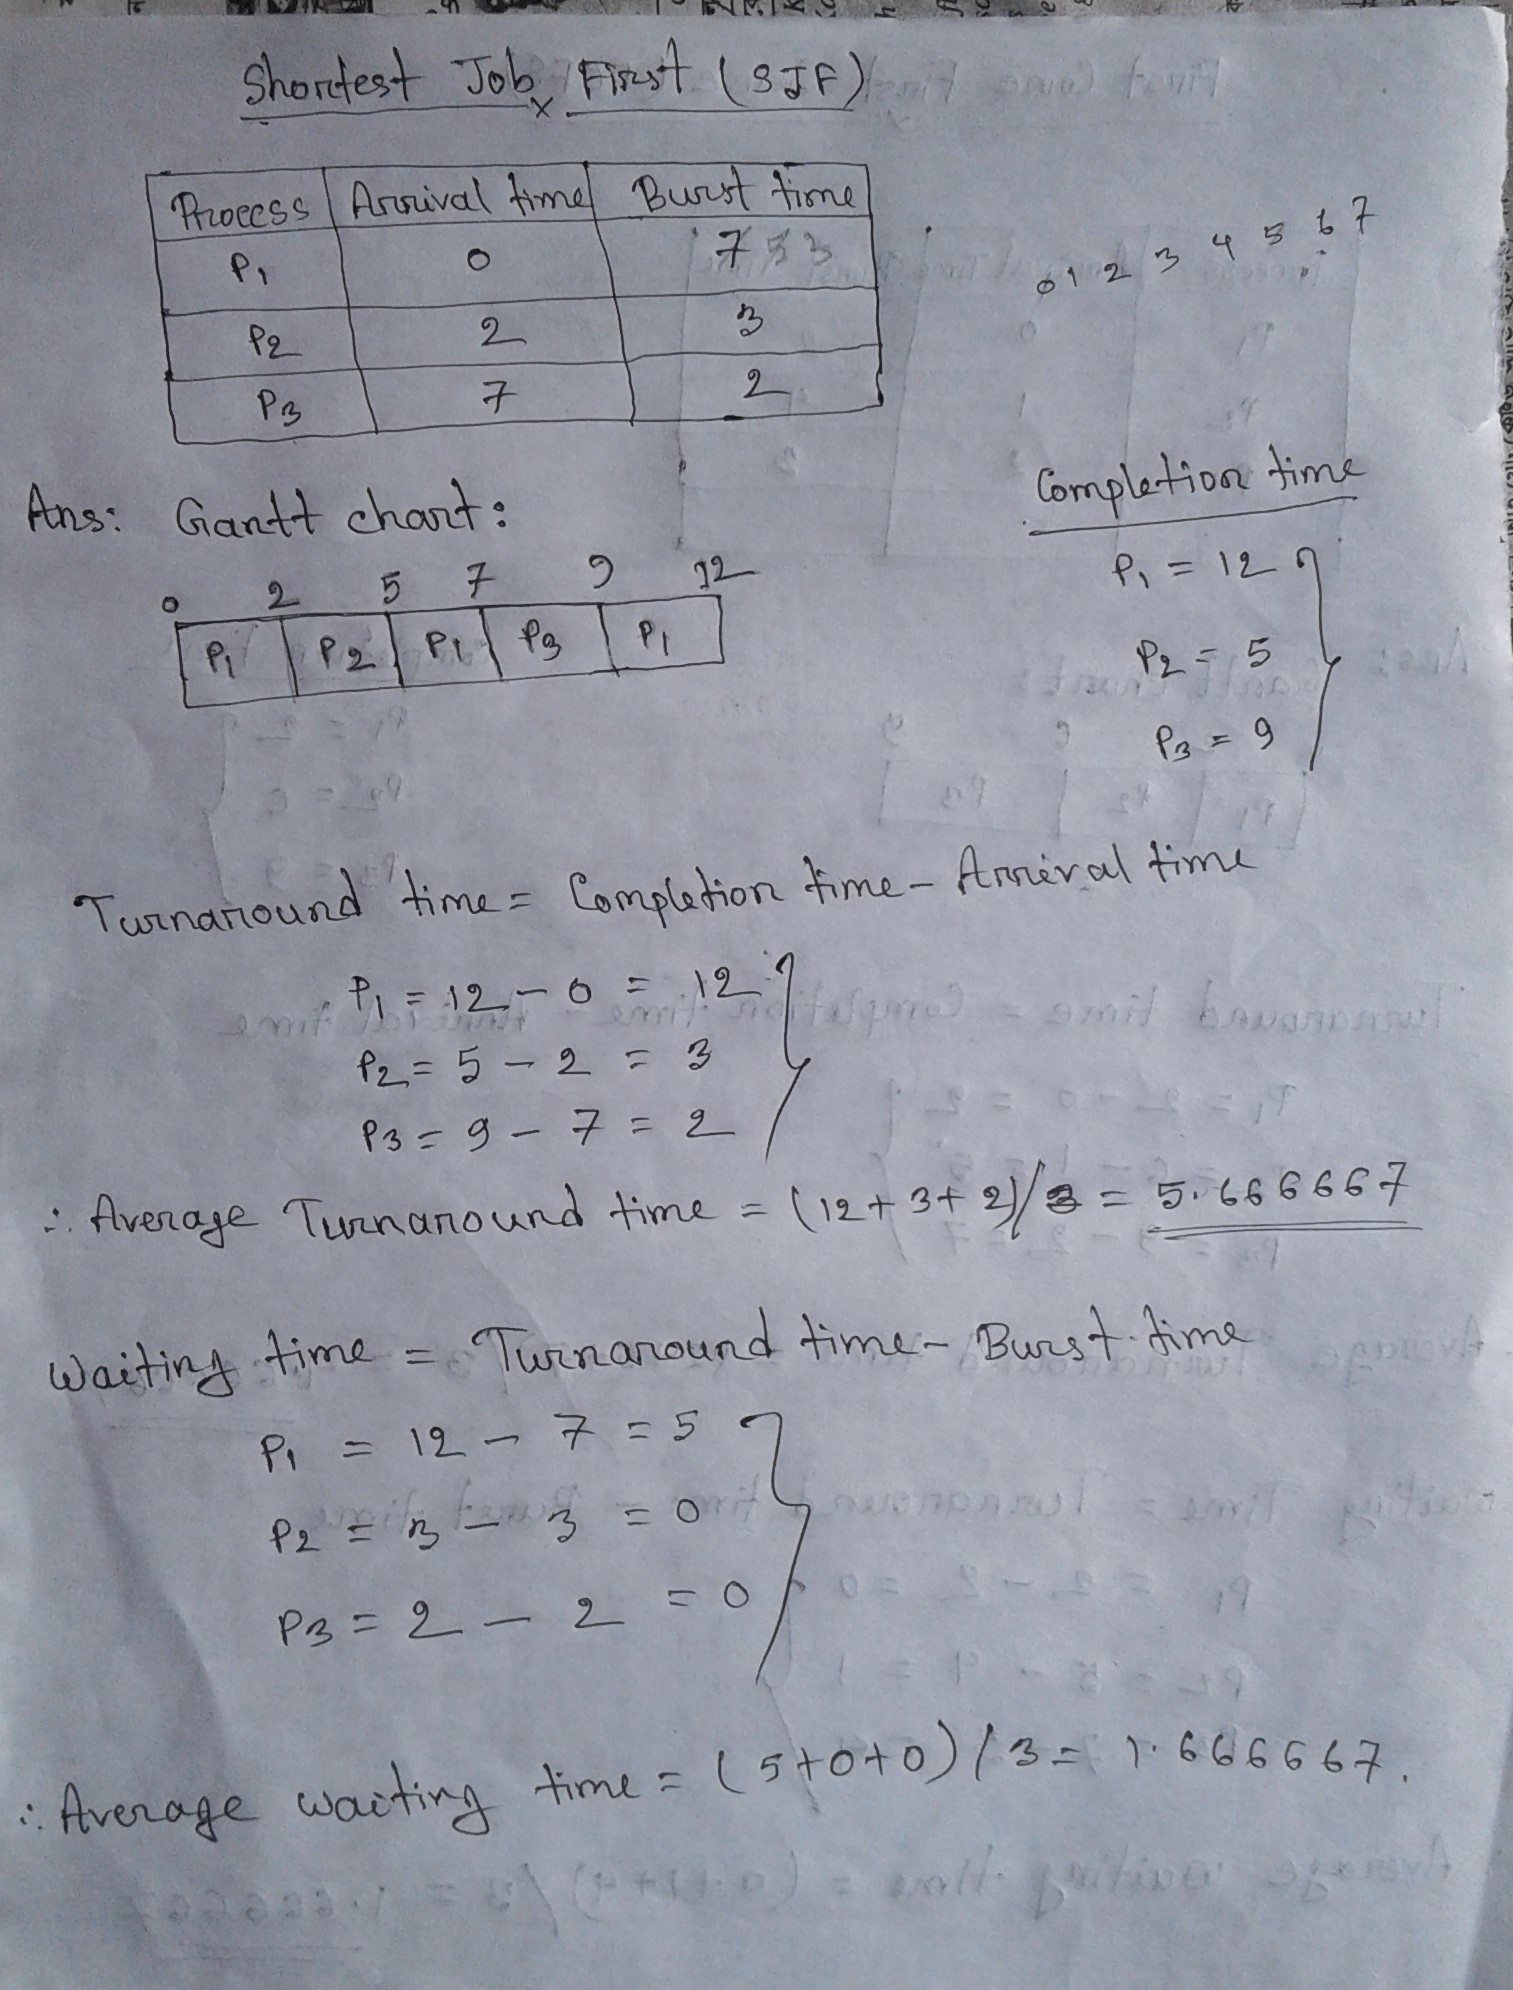 Shortest Job First (SJF)
Process Arrival time Burst time
P1 0 7 5 3
P2 2 3
P3 7 2
0 1 2 3 4 5 6 7
Ans: Gantt chart:
0 2 5 7 9 12
P1 P2 P1 P3 P1
Completion time
P1 = 12
P2 = 5
P3 = 9
Turnaround time = Completion time - Arrival time
P1 = 12 - 0 = 12
P2 = 5 - 2 = 3
P3 = 9 - 7 = 2
∴ Average Turnaround time = (12 + 3 + 2)/3 = 5.666667
Waiting time = Turnaround time - Burst time
P1 = 12 - 7 = 5
P2 = 3 - 3 = 0
P3 = 2 - 2 = 0
∴ Average waiting time = (5+0+0)/3 = 1.666667.